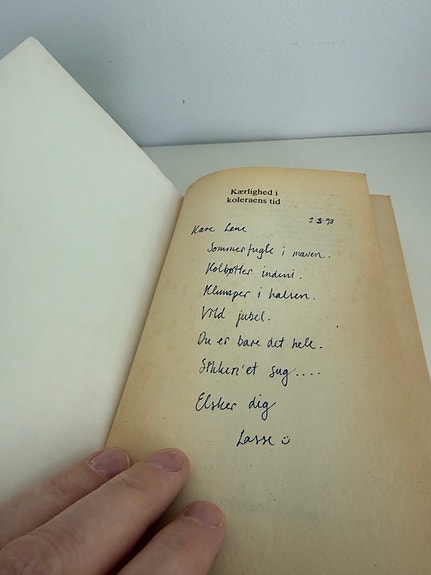 Kærlighed i
koleraens tid
2.3.93
Kære Lene
Sommerfugle i maven.
Kolbøtter indeni.
Klumper i halsen.
Vild jubel.
Du er bare det hele.
Sikken'et sug....
Elsker dig
Lasse ☺